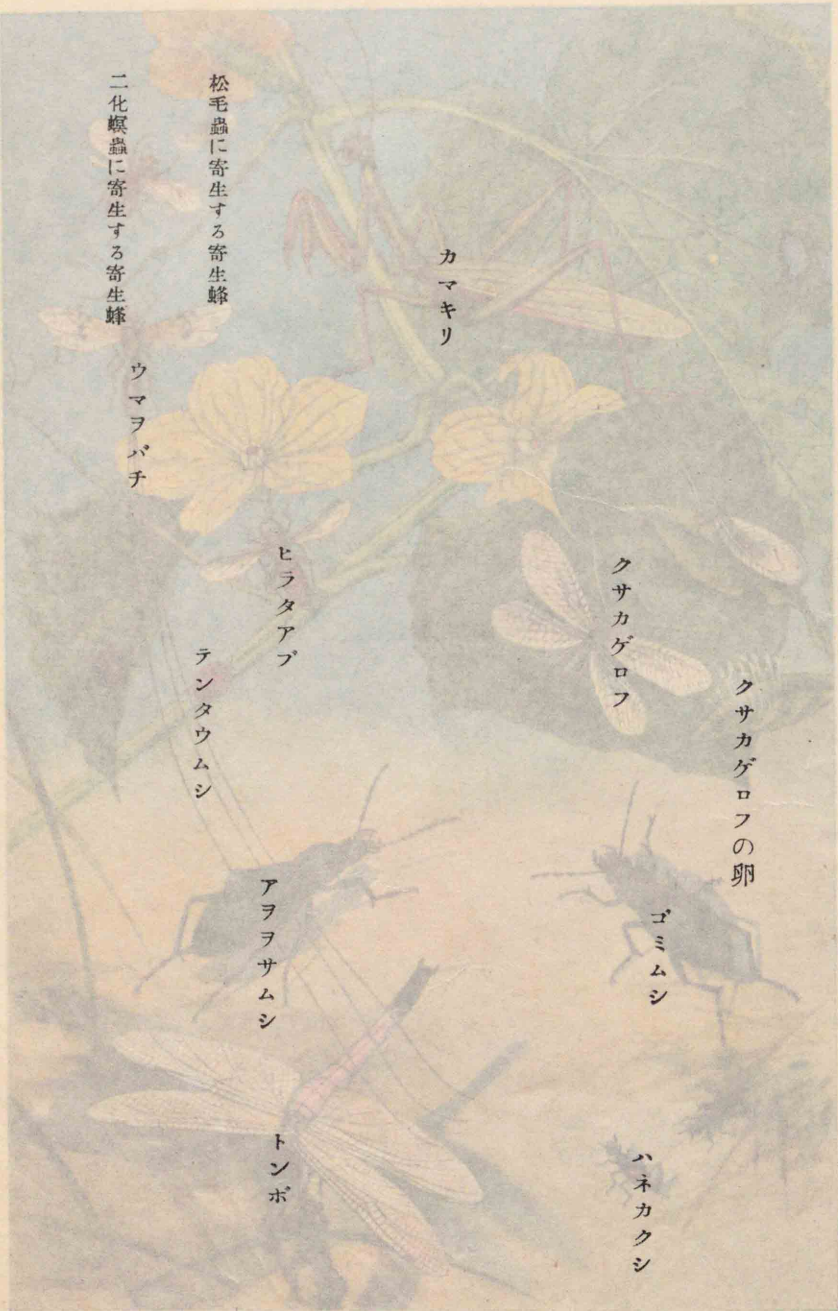 クサカゲロフの卵
ゴミムシ
ハネカクシ
クサカゲロフ
カマキリ
ヒラタアブ
アヲヲサムシ
トンボ
松毛蟲に寄生する寄生蜂
テンタウムシ
ウマヲバチ
二化螟蟲に寄生する寄生蜂